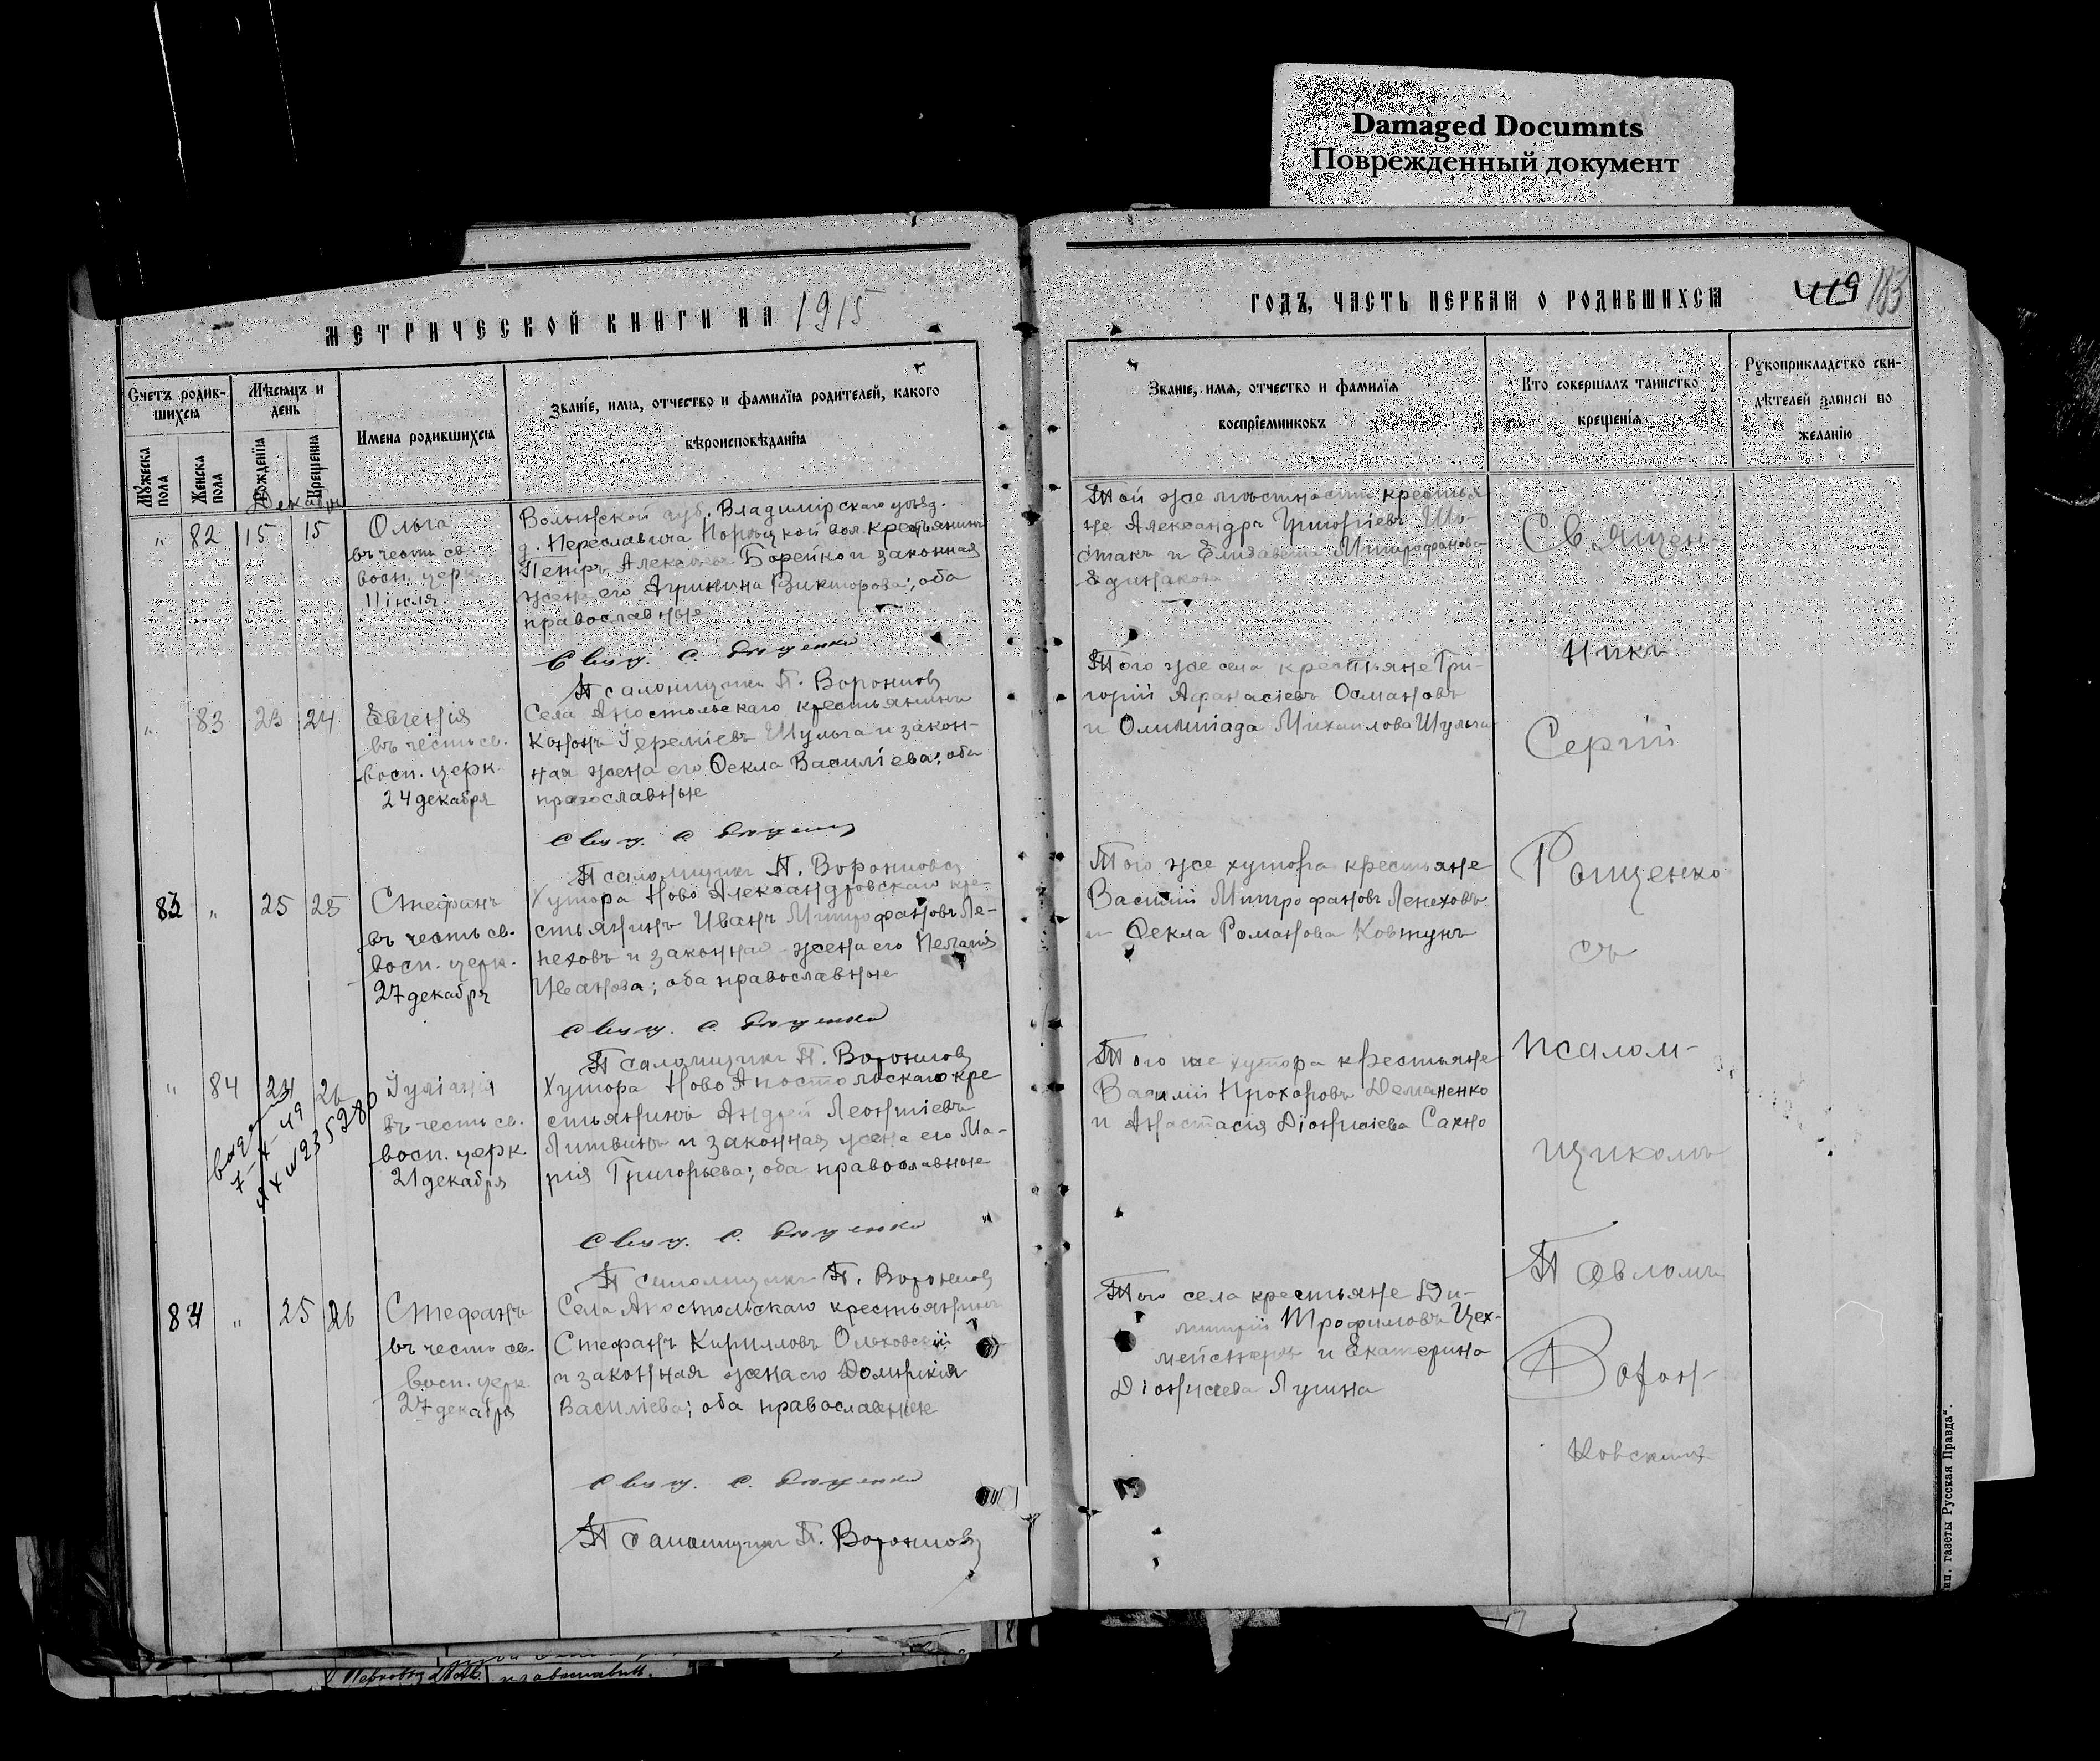 Damaged Documnts
Поврежденный документ
МЕТРИЧЕСКОЙ КНИГИ НА 1915
ГОДЪ, ЧАСТЬ ПЕРВАЯ О РОДИВШИХСЯ
419 183
Счетъ родив-
шихся
Мѣсяцъ и
день
Мужеска
пола
Женска
пола
Рожденія
Крещенія
Имена родившихся
Званіе, имя, отчество и фамилія родителей, какого
вѣроисповѣданія
Званіе, имя, отчество и фамилія
воспріемниковъ
Кто совершалъ таинство
крещенія
Рукоприкладство сви-
дѣтелей записи по
желанію
Декабрь
" 82 15 15
Ольга
въ честь св.
восп. церк.
11 іюля.
Волынской губ. Владимірскаго уѣзд.
д. Переславича Порыцкой вол. крестьянинъ
Петръ Алексѣевъ Борейко и законная
жена его Агрипина Викторова; оба
православные
Свящ. С. Рощенко
Псаломщикъ П.
Той же мѣстности крестья
не Александръ Григоріевъ Шо-
стакъ и Елизавета Митрофанова
Единакова
" 83 23 24
Евгенія
въ честь св.
восп. церк.
24 декабря
Села Апостольскаго крестьянинъ
Кононъ Іереміевъ Шульга и закон-
ная жена его Ѳекла Василіева; оба
православные
Свящ. С. Рощенко
Псаломщикъ П.
Того же села крестьяне Гри-
горій Афанасіевъ Османовъ
и Олимпіада Михаилова Шульга
83 " 25 25
Стефанъ
въ честь св.
восп. церк.
27 декабря
Хутора Ново Александровскаго кре-
стьянинъ Иванъ Митрофановъ Ле-
пеховъ и законная жена его Пелагія
Иванова; оба православные
Свящ. С. Рощенко
Псаломщикъ П.
Того же хутора крестьяне
Василій Митрофановъ Лепеховъ
и Ѳекла Романова Ковтунъ
" 84 21 26
7-X-49
235280
Іуліанія
въ честь св.
восп. церк.
21 декабря
Хутора Ново Апостольскаго кре
стьянинъ Андрей Леонтіевъ
Литвинъ и законная жена его Ма-
рія Григорьева; оба православные
Свящ. С. Рощенко
Псаломщикъ П.
Того же хутора крестьяне
Василій Прохоровъ Деманенко
и Анастасія Діонисіева Сахно
84 " 25 26
Стефанъ
въ честь св.
восп. церк.
27 декабря
Села Апостольскаго крестьянинъ
Стефанъ Кирилловъ Ольховскій
и законная жена его Домникія
Василіева; оба православные
Свящ. С. Рощенко
Псаломщикъ П.
Того села крестьяне Ди-
митрій Трофимовъ Цех-
мейстеръ и Екатерина
Діонисіева Лугина
Священ-
никъ
Сергій
Рощенко
съ
псалом-
щикомъ
Павломъ
ип. газеты Русская Правда".